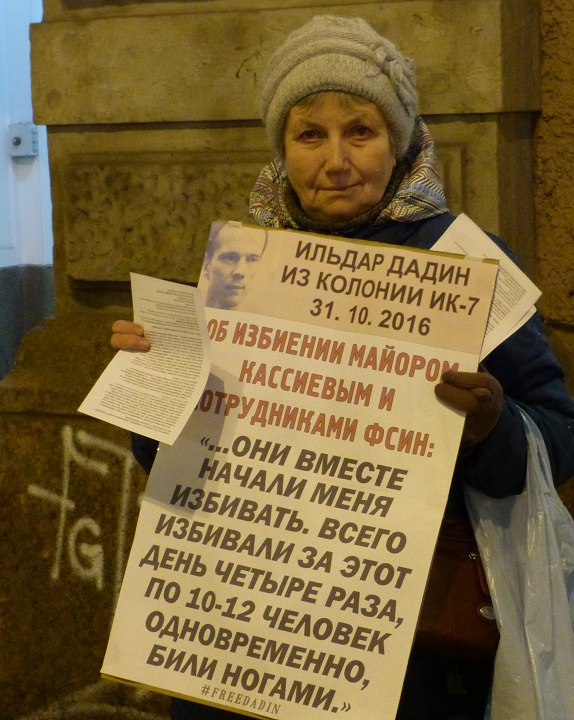 ИЛЬДАР ДАДИН
ИЗ КОЛОНИИ ИК-7
31. 10. 2016
ОБ ИЗБИЕНИИ МАЙОРОМ
КАССИЕВЫМ И
СОТРУДНИКАМИ ФСИН:
«...ОНИ ВМЕСТЕ
НАЧАЛИ МЕНЯ
ИЗБИВАТЬ. ВСЕГО
ИЗБИВАЛИ ЗА ЭТОТ
ДЕНЬ ЧЕТЫРЕ РАЗА,
ПО 10-12 ЧЕЛОВЕК
ОДНОВРЕМЕННО,
БИЛИ НОГАМИ.»
#FREEDADIN